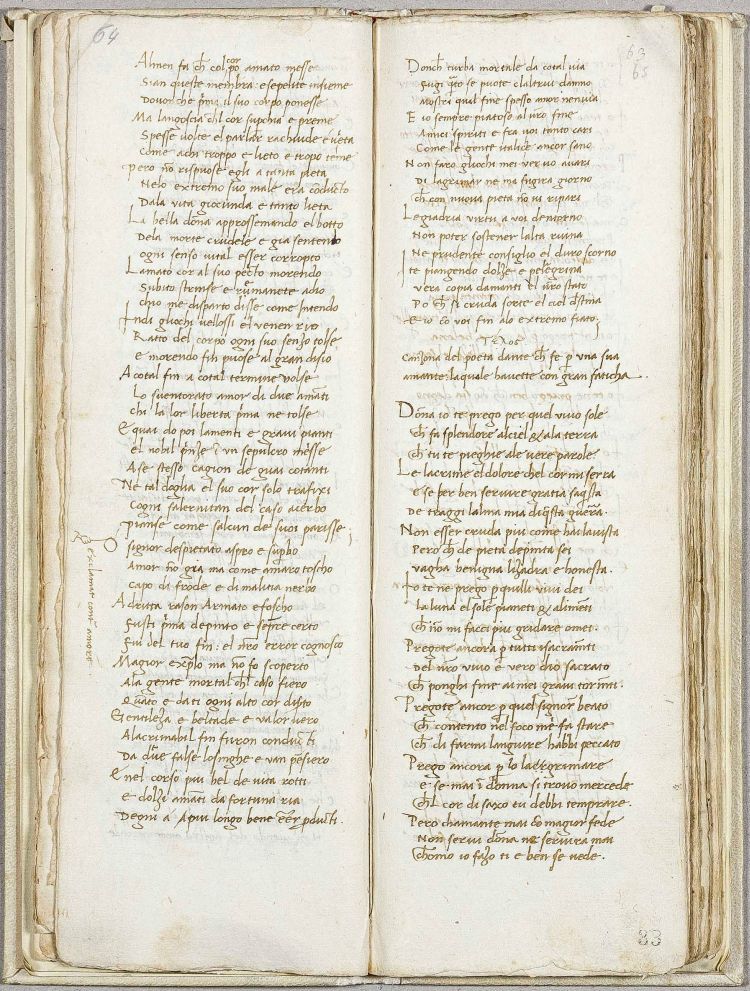 64
Almen fa ch̄ col cor po amato messe
Sian queste membra: e sepelite insieme
Dovor che p̄ma il suo corpo ponesse
Ma langoscia chl cor supchia e preme
Spesse volte el parlar rachiude e vieta
Come achi troppo e lieto e tropo teme
pero nō rispuose egli a tanta pieta
Nelo extremo suo male era cōducto
Dala vita giocunda e tanto lieta
La bella dōna approssemando el botto
Dela morte crudele e gia sentendo
ogni senso vital esser corropto
Lamato cor al suo pecto morendo
Subito strense e rimanete adio
chio me disparto disse come intendo
Indi gliochi vellossi el venen rio
Ratto del corpo ogni suo senso tolse
E morendo fin puose al gran disio
A cotal fin a cotal termine volse
Lo sventorato amor di due amāti
Chi la lor liberta p̄ma ne tolse
E quai dopoi lamenti e gravi pianti
el nobil p̄nze ī un sepulcro messe
A se stesso cagion de guai cotanti
Ne tal doglia el suo cor solo trafixi
Cogni salernitan del caso acerbo
Pianse come salcun de suoi parisse
O signor despietato aspro e supbo
Amor nō gia ma come amaro toscho
Capo di frode e di malitia nerbo
exclamat cont' amorē
A dritta rason Armato e foscho
Fusti p̄ma depinto e sempre certo
Fui del tuo fin: el nr̄o error cognosco
Magior exp̄lo ma nō fo scoperto
Ala gente mortal chl caso fiero
Quāto e dati ogni alto cor dishto
Gentileza e beltade e valor vero
A lacrimabil fin furon conducti
Da due false losinghe e van pensiero
E nel corso piu bel de vita rotti
e dolzi amāti da fortuna ria
Degni a piu longo bene eēr pducti.
63
65
Donch̄ turba mortale da cotal via
Fugi q̄to se puote e laltrui danno
Mostri qual fine spesso amor nenvia
E io sempre piatoso al vr̄o fine
Amici spiriti e fra voi tanto cari
Come le gente italice ancor sano
Non faro gliochi mei ver vuo avari
Di lagrimar ne ma fugira giorno
ch̄ con nuova pieta nō vi ripari
Legiadria virtu a voi dentorno
Non poter sostener lalta ruina
Ne prudente consiglio el duro scorno
Te piangendo dolze e pelegrina
vera copia damanti el vr̄o stato
Po ch̄ si cruda sorte el ciel destina
E io cō voi fin alo extremo fiato
Τέλος
Canzona del poeta dante ch̄ fe p una sua
amante: laquale havette con gran faticha.
Dōna io te prego per quel vivo sole
Ch̄ fa splendore al ciel & ala terra
Ch̄ tu te pieghie ale vere parole
Le lacrime el dolore chel cor mi serra
E se per ben servire gratia saqsta
De traggi lalma mia di qsta guerra.
Non esser cruda piu come hai lavista
Pero ch̄ de pieta depinta sei
vagha benigna lizadra e honesta.
Io te ne prego p quilli vivi dei
La luna el sole pianeti & alimēti
Ch̄ nō mi facci piu gridare omei.
Pregote ancora p tutti sacramēti
Del nr̄o vivo e vero dio sacrato
Ch̄ ponghi fine ai mei gravi tormēti.
Pregote ancor p quel signor beato
Ch̄ contento nel foco me fa stare
Ch̄ di farmi languire habbi peccato
Prego ancora p lo lacrigrimare
e se mai ī donna si trovo mercede
Ch̄l cor di saxo tu debbi temprare.
Pero chamante mai cō magior fede
Non servi dōna ne servira mai
Chomo io fazo ti e ben se vede.
33